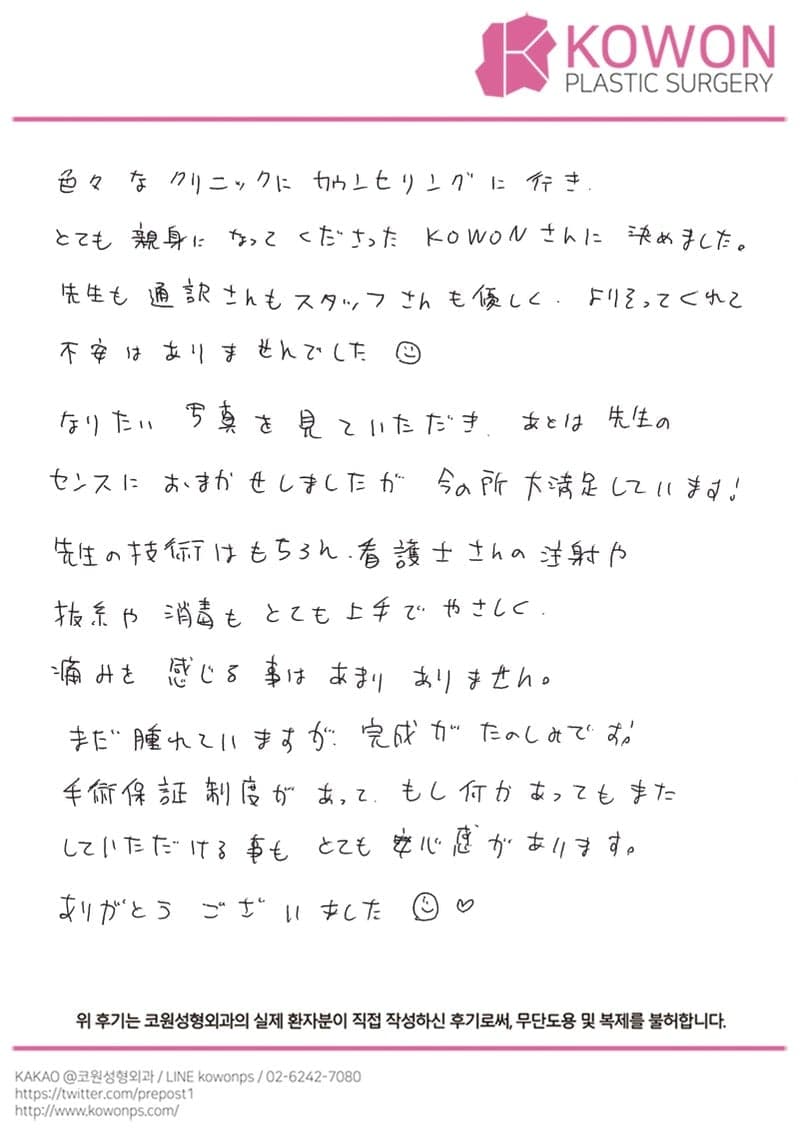 KOWON
PLASTIC SURGERY
色々なクリニックにカウンセリングに行き、
とても親身になってくださったKOWONさんに決めました。
先生も通訳さんもスタッフさんも優しく、よりそってくれて
不安はありませんでした
なりたい写真を見ていただき、あとは先生の
センスにおまかせしましたが今の所大満足しています!
先生の技術はもちろん、看護士さんの注射や
抜糸や消毒もとても上手でやさしく、
痛みを感じる事はあまりありません。
まだ腫れていますが、完成がたのしみです!
手術保証制度があって、もし何かあってもまた
していただける事もとても安心感があります。
ありがとうございました ♡
위 후기는 코원성형외과의 실제 환자분이 직접 작성하신 후기로써, 무단도용 및 복제를 불허합니다.
KAKAO @코원성형외과 / LINE kowonps / 02-6242-7080
https://twitter.com/prepost1
http://www.kowonps.com/